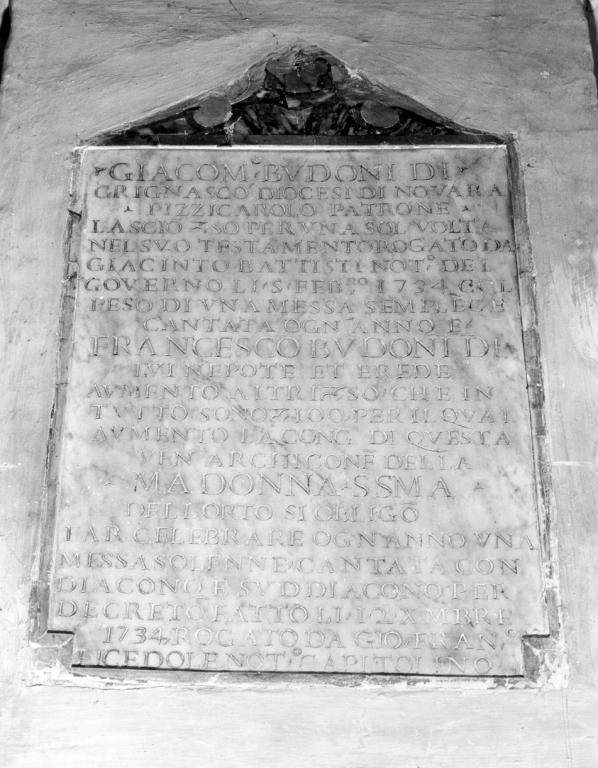 GIACOM·º BVDONI DI
GRIGNASCO DIOCESI DI NOVARA
PIZZICAROLO PATRONE
LASCIÒ 50 PER VNA SOL VOLTA
NEL SVO TESTAMENTO ROGATO DA
GIACINTO BATTISTI NOT·º DEL
GOVERNO LI·5·FEB·º 1734 COL
PESO DI VNA MESSA SEMPLECE
CANTATA OGN' ANNO E
FRANCESCO BVDONI DI
IVI NEPOTE ET EREDE
AVMENTO ALTRI 50 CHE IN
TUTTO SONO 100 PER IL QVAL
AVMENTO LA CONG· DI QVESTA
VEN·ARCHICONF·DELLA
MADONNA·SSMA
DELL'ORTO SI OBLIGÒ
FAR CELEBRARE OGN'ANNO VNA
MESSA SOLENNE CANTATA CON
DIACONO E SVDDIACONO PER
DECRETO FATTO LI·12·XMBRE
1734 ROGATO DA GIO·FRAN·º
NOT·º CAPITOLINO